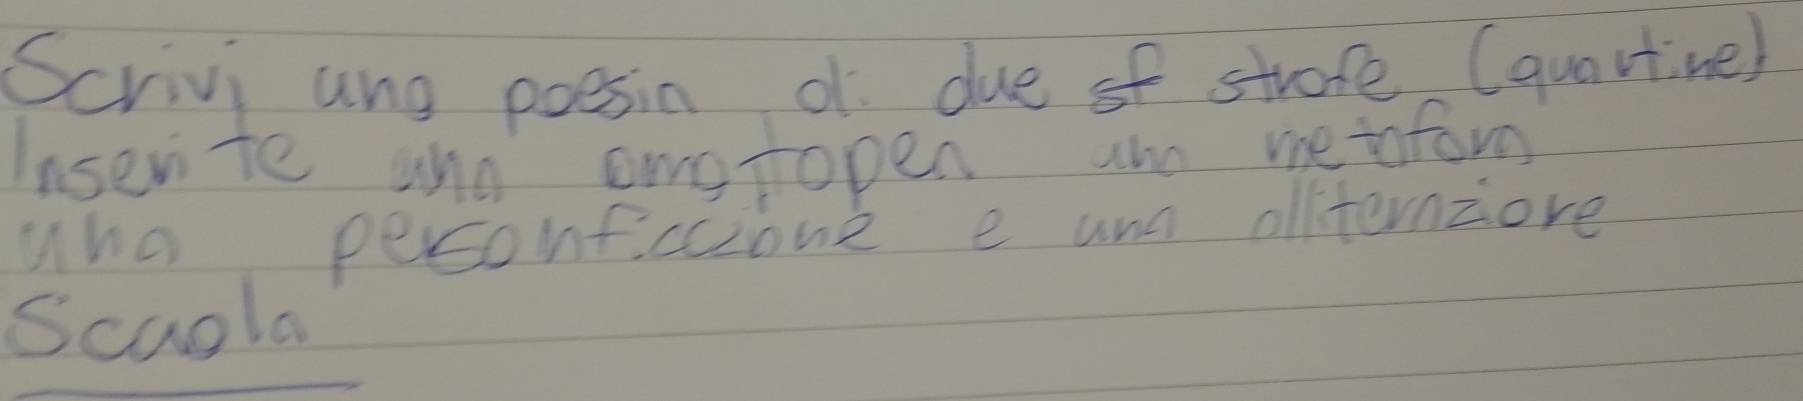 Scrivi una poesia di due sf strofe (quartine)
Inserite una onomatopea una metafora
una personificazione e una allitterazione
Scuola